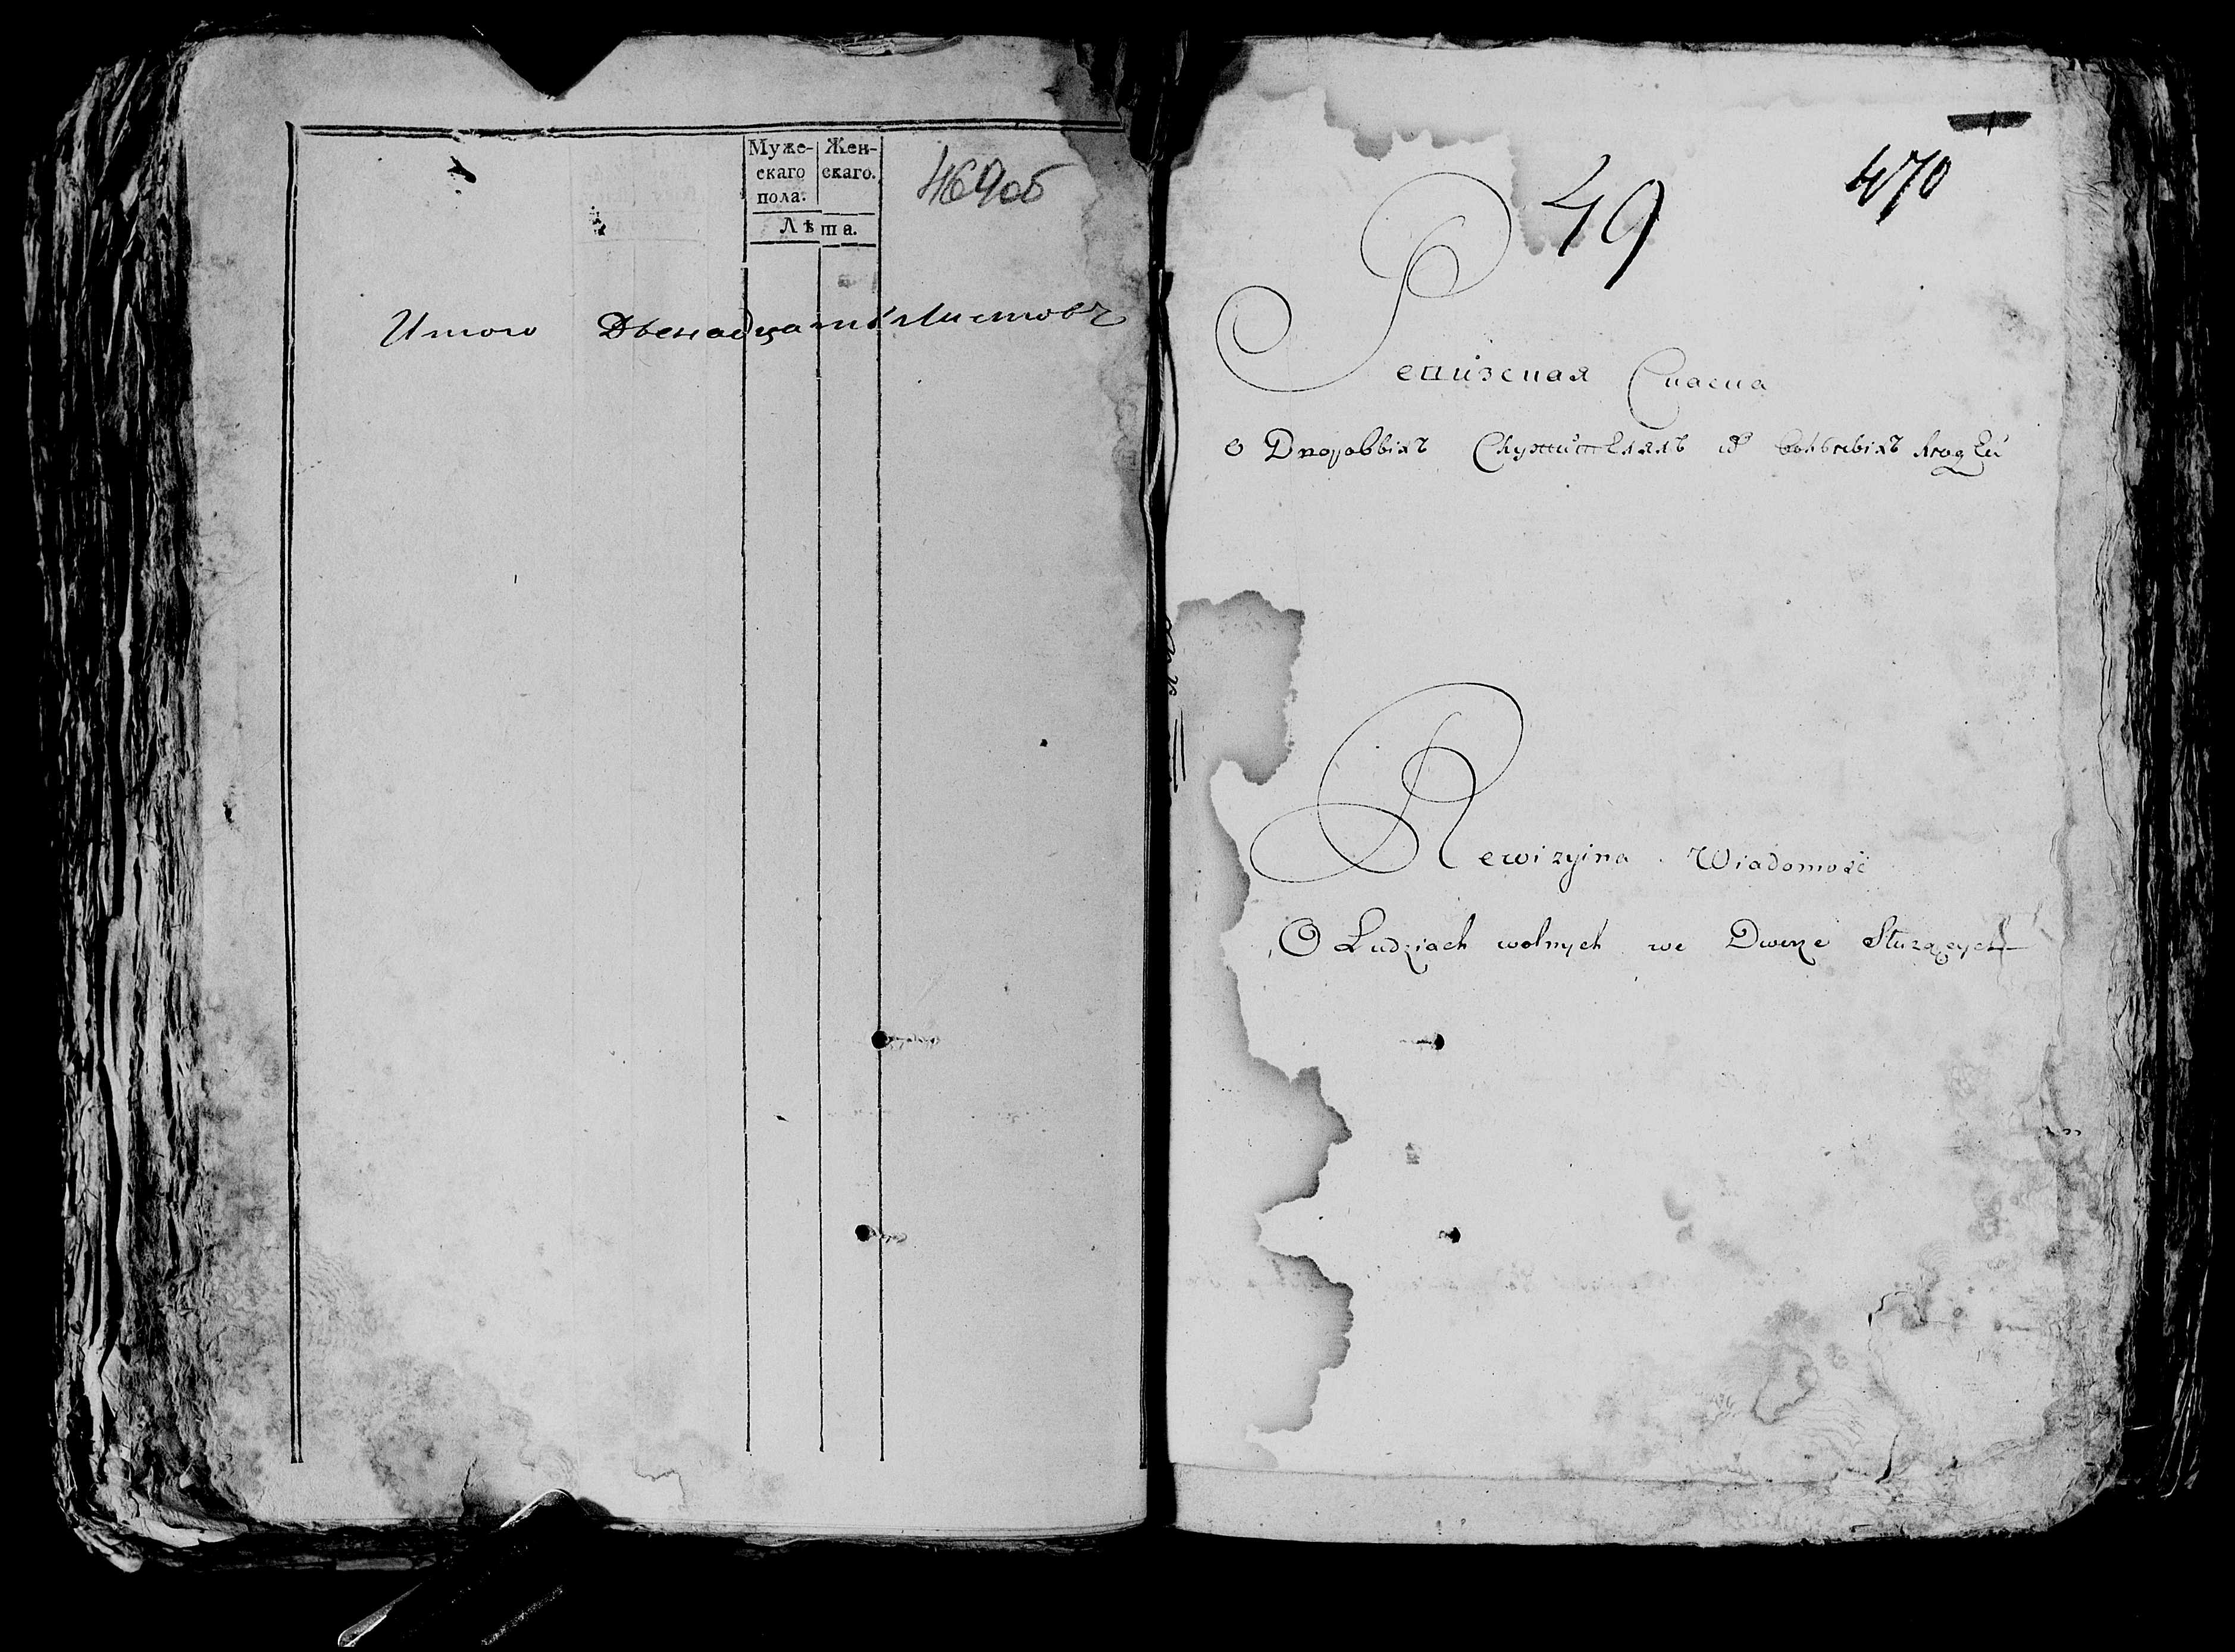 Муже-
скаго
пола.
Жен-
скаго.
Лѣта.
469об
Итого Двенадцать Листовъ
470
49
Ревизская Скаска
О Дворовыхъ Служителяхъ изъ вольныхъ людей
Rewizyina Wiadomość
O Ludziach wolnych we Dworze Służących